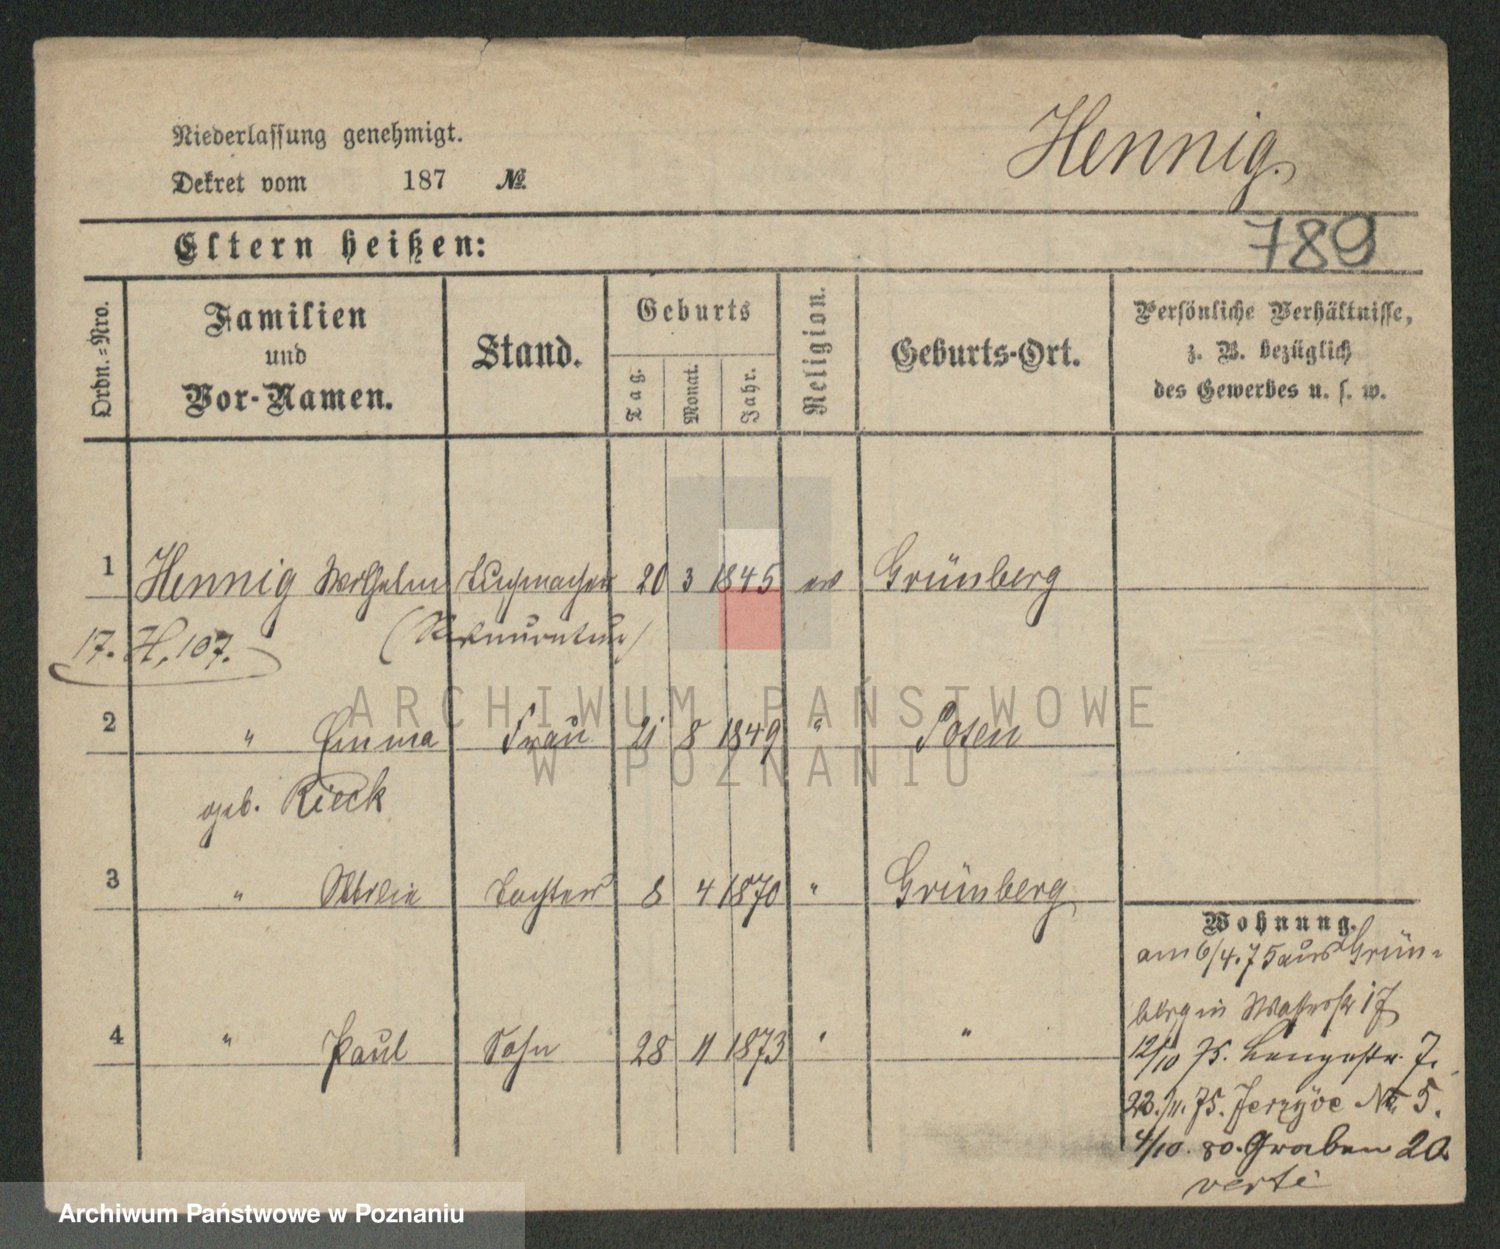 Niederlassung genehmigt.
Dekret vom 187 №
Hennig.
Eltern heißen:
789
Ordn.=Nro.
Familien
und
Vor-Namen.
Stand.
Geburts
Tag.
Monat.
Jahr.
Religion.
Geburts-Ort.
Persönliche Verhältnisse,
z. B. bezüglich
des Gewerbes u. s. w.
1 Hennig Wilhelm Tuchmacher 20 3 1845 ev Grünberg
17. H. 107.
2 " Emma Frau 21 8 1849 " Posen
geb. Rieck
3 " Tochter 8 4 1870 " Grünberg
4 " Paul Sohn 28 11 1873 " "
Wohnung.
am 6/4.75 aus Grün-
berg in 17
12/10 75. Langestr. 7.
23./11.75. Jerzyce № 5.
4/10.80. Graben 20.
verte
ARCHIWUM PAŃSTWOWE
W POZNANIU
Archiwum Państwowe w Poznaniu